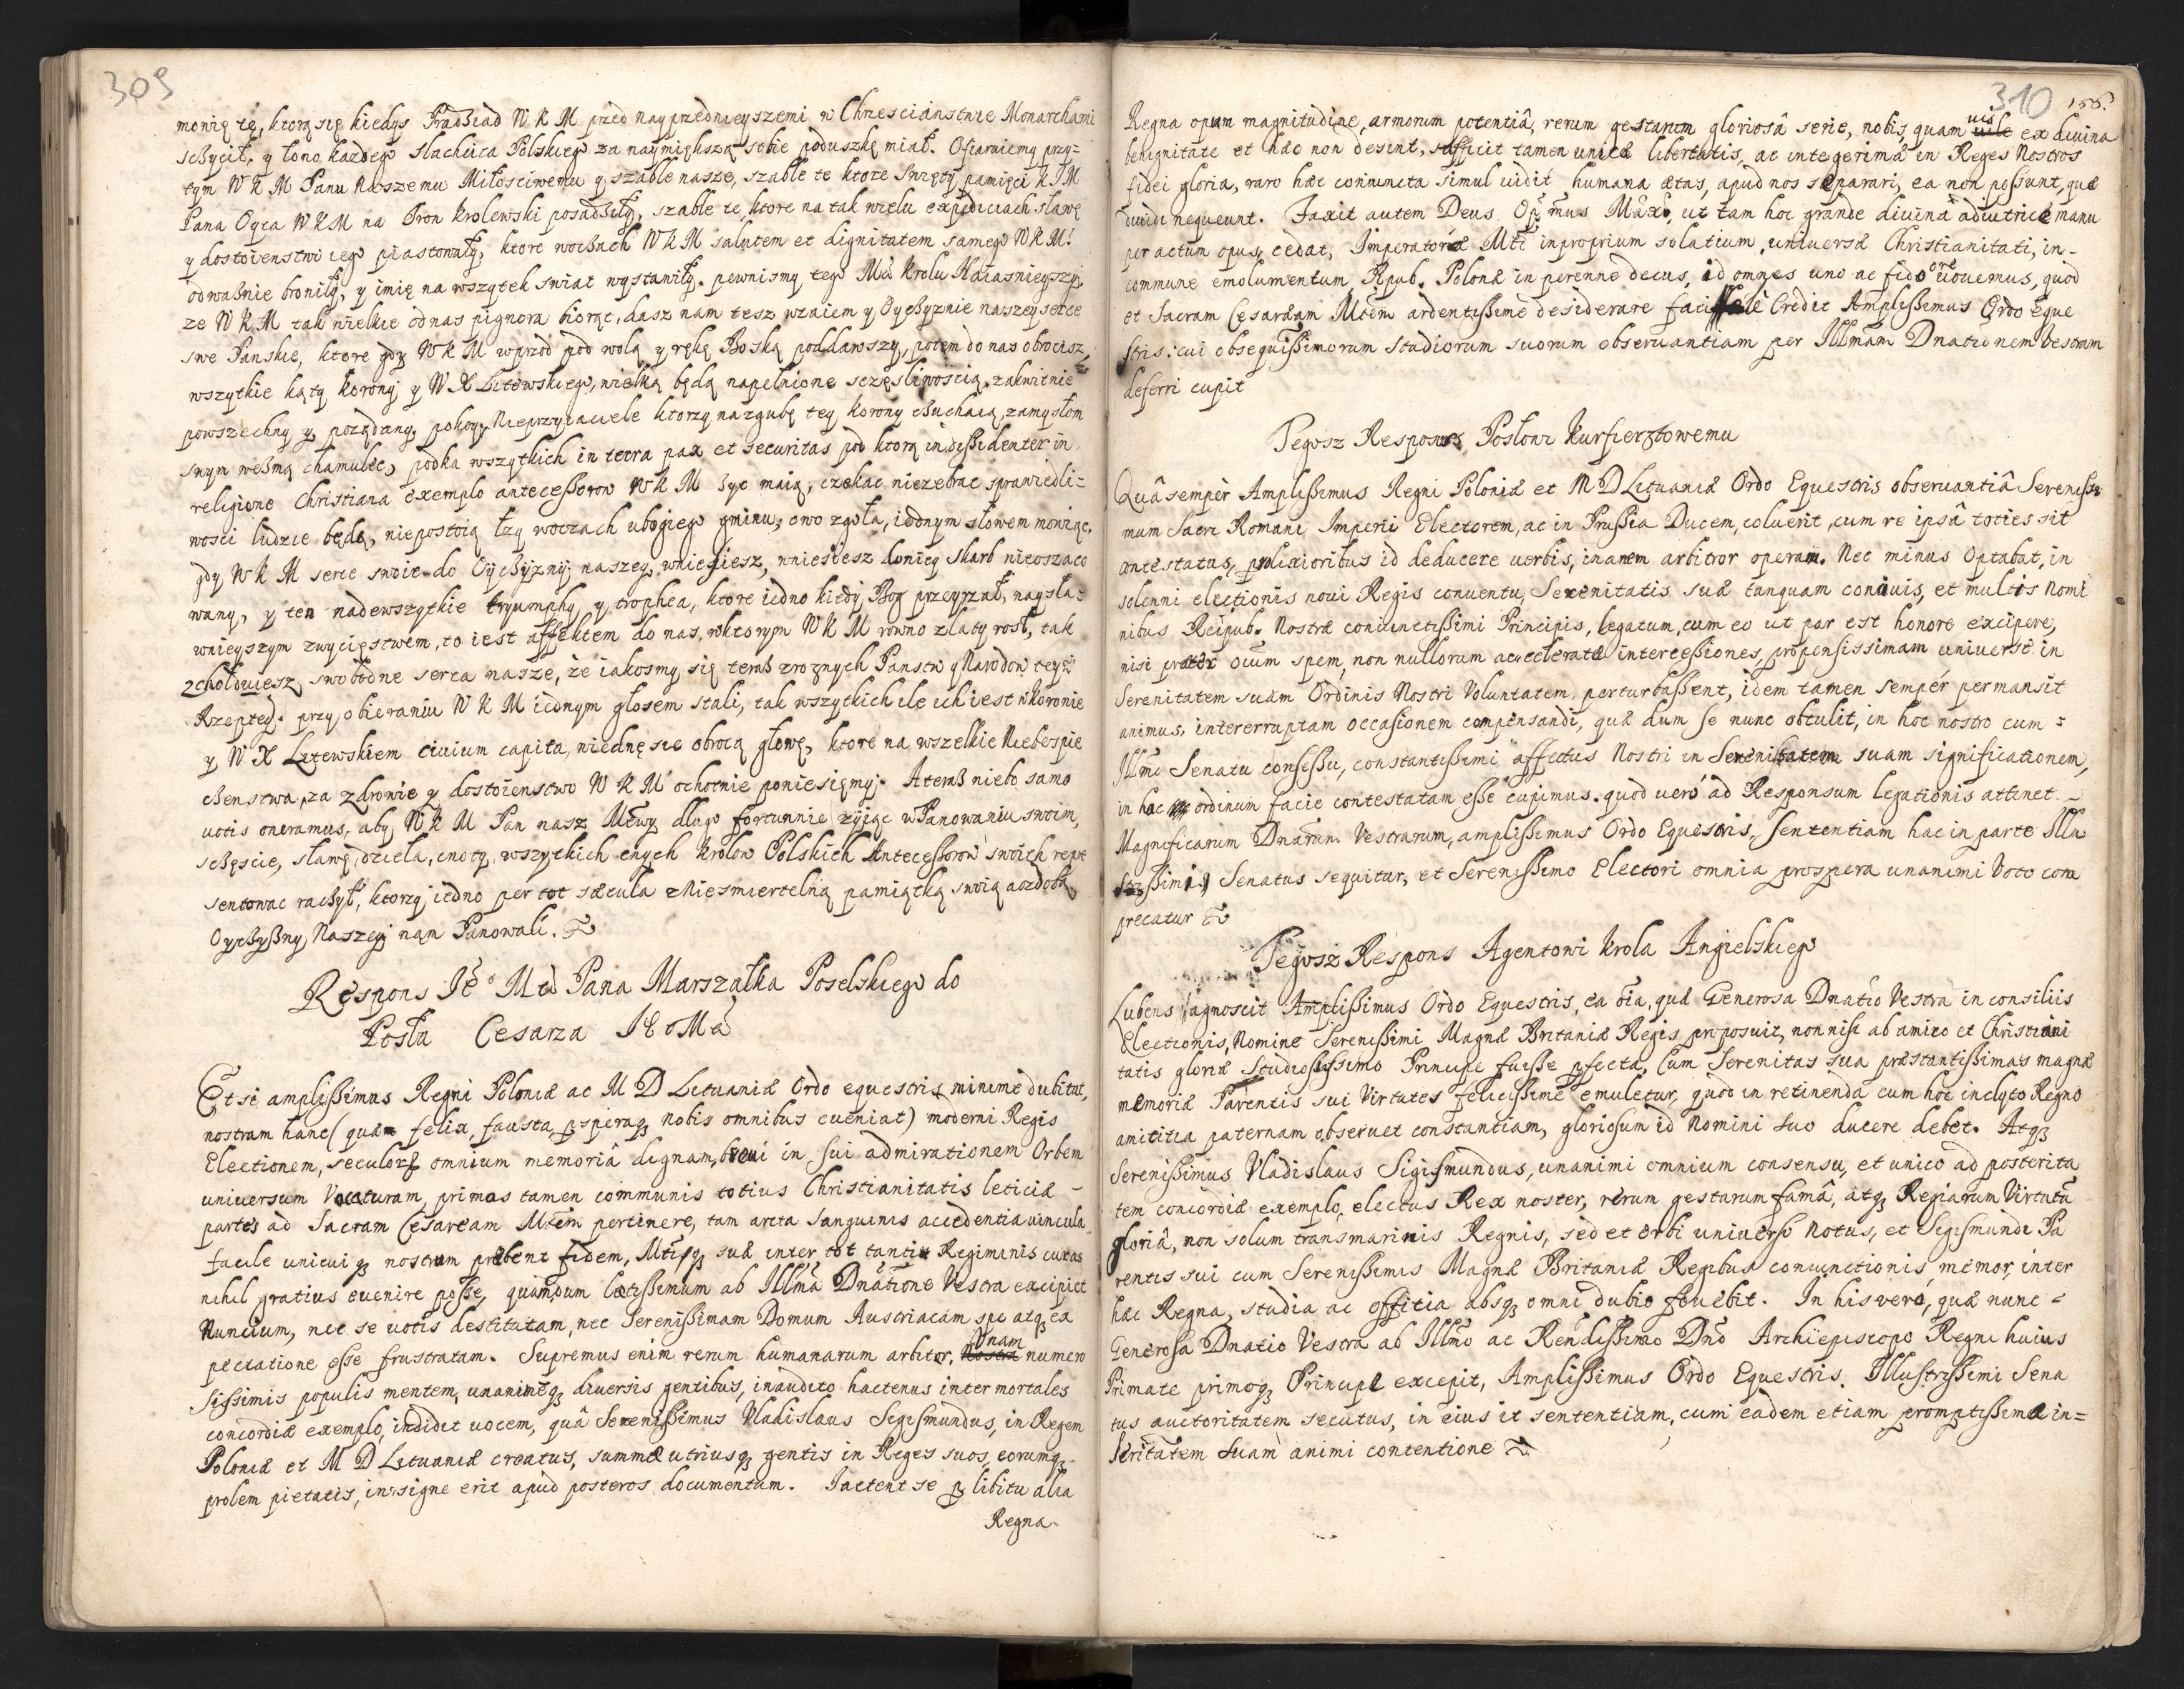 309
monię tę, ktorą się kiedys Pradziad W K M przed nayprzednieyszemi w Chrzescianstwie Monarchami
sczycił, y łono każdego slachcica Polskiego za naymiększą sobie poduszkę miał. Ofiaruiemy przy=
tym W K M Panu Naszemu Miłosciwemu y szable nasze, szable te ktore swięty pamięci K J M
Pana Oyca W K M na Tron krolewski posadziły, szable te, ktore na tak wielu expediciach sławę
y dostoienstwo iego piastowały, ktore woczach W K M salutem et dignitatem samego W K M
odważnie broniły, y imię na wszytek swiat wystawiły. pewnismy tego Mci Krolu Naiasnieyszy,
ze W K M tak wielkie od nas pignora biorąc, dasz nam tesz wzaiem y Oyczyznie naszey serce
swe Panskie, ktore gdy W K M wprzod pod wolą y rękę Boską poddawszy, potem do nas obrocisz,
wszytkie kąty Korony y W X Litewskiego, wielką będą napełnione sczęsliwoscią, zakwitnie
powszechny y pożądany pokoy, Nieprzyiaciele ktorzy na zgubę tey Korony czuchaią, zamysłom
swym wezmą chamulec, podka wszytkich in terra pax et securitas pod ktorą indissidenter in
religione Christiana exemplo antecessorow W K M życ maią, czekac niezebrac sprawiedli=
wosci ludzie będą, niepostoią łzy woczach ubogiego gminu, owo zgoła, iednym słowem mowiąc,
gdy W K M serce swoie do Oyczyzny naszey wniesiesz, wniesiesz do niey skarb nieoszaco
wany, y ten nadewszytkie tryumphy y trophea, ktore iedno kiedy Bog przeyrzał, naysła=
wnieyszym zwycięstwem, to iest affektem do nas, wktorym W K M rowno zlaty rosł, tak
zchołduiesz swobodne serca nasze, że iakosmy się teraz zroznych Panstw y Narodow teyż
Rzeptey. przy obieraniu W K M iednym głosem stali, tak wszytkich ile ich iest w koronie
y W X Litewskiem ciuium capita, wiednę sie obrocą głowę, ktore na wszelkie Niebespie
czenstwa, za zdrowie y dostoienstwo W K M ochotnie poniesięmy. A teraz niebo samo
uotis oneramus, aby W K M Pan nasz Młwy długo fortunnie żyiąc w Panowaniu swoim,
sczęscie, sławę, dzieła, cnoty, wszytkich cnych krolow Polskich Antecessorow swoich repre
sentowac raczył, ktorzy iedno per tot sæcula zNiesmiertelną pamiątką swoią aozdobą
Oyczyzny Naszey nam Panowali.
Respons Je° Mci Pana Marszałka Poselskiego do
Posła Cesarza JEoMci
Etsi amplissimus Regni Poloniæ ac M D Lituaniæ Ordo equestris minime dubitat,
nostram hanc (quæ felix, fausta, prosperaq; nobis omnibus eueniat) moderni Regis
Electionem, seculorum omnium memoriâ dignam, breui in sui admirationem Orbem
uniuersum Vocaturam, primas tamen communis totius Christianitatis leticiæ -
partes ad Sacram Cesaream Mtem pertinere, tam arcta sanguinis accedentia uincula
facile unicuiq; nostrum præbent fidem, Mtiq; suæ inter tot tanti Regiminis curas
nihil gratius euenire posse, quam dum lætissimum ab Illma Dnatione Vestra excipiet
Nuncium, nec se uotis destitutam, nec Serenissimam Domum Austriacam spe atq; ex
pectatione esse frustratam. Supremus enim rerum humanarum arbiter, Vnam numero
sissimis populis mentem, unanimeq; diuersis gentibus, inaudito hactenus inter mortales
concordiæ exemplo, indidit uocem, quâ Serenissimus Vladislaus Sigismundus, in Regem
Poloniæ et M D Lituaniæ creatus, summæ utriusq; gentis in Reges suos, eorumq;
prolem pietatis, insigne erit apud posteros documentum. Iactent se p libitu alia
Regna
310
Regna opum magnitudine, armorum potentiâ, rerum gestarum gloriosâ serie, nobis, quam uis ex diuina
benignitate et hæc non desint, sufficit tamen unica libertatis, ac integerimæ in Reges Nostros
fidei gloria, raro hæc coniuncta simul uidit humana ætas, apud nos separari, ea non possunt, quæ
diuidi nequeunt. Faxit autem Deus Opmus Maxs, ut tam hoc grande diuinâ adiutrice manu
peractum opus, cedat, Imperatoræ Mti in proprium solatium, uniuersæ Christianitati, in-
commune emolumentum, Rpub. Polonæ in perenne decus, id omnes uno ac fido ore uouemus, quod
et Sacram Cesaream Mtem ardentissime desiderare facile Credit Amplissimus Ordo Eque
stris: cui obsequissimorum studiorum suorum obseruantiam per Illmam Dnationem Vestram
deferri cupit
Tegosz Respons Posłowi Kurfierstowemu
Quâ semper Amplissimus Regni Poloniæ et M D Lituaniæ Ordo Equestris obseruantiâ Serenissi
mum Sacri Romani Imperii Electorem, ac in Prussia Ducem, coluerit, cum re ipsâ toties sit
antestatus, prolixioribus id deducere uerbis, inanem arbitror operam. Nec minus Optabat, in
solenni electionis noui Regis conuentu, Serenitatis suæ tanquam conuiuis, et multis Nomi
nibus Reipub. Nostræ coniunctissimi Principis, legatum, cum eo ut par est honore excipere,
nisi præter oium spem, non nullorum acceleratæ intercessiones, propensissimam uniuersi in
Serenitatem suam Ordinis Nostri Voluntatem perturbassent, idem tamen semper permansit
animus, intererruptam occasionem compensandi, quæ dum se nunc obtulit, in hoc nostro cum =
Illmo Senatu consessu, constantissimi affectus Nostri in Serenitatem suam significationem,
in hac ordinum facie contestatam esse cupimus. quod uerò ad Responsum legationis attinet -
Magnificarum Dnarum Vestrarum, amplissimus Ordo Equestris, sententiam hac in parte Illu
strissimi Senatus sequitur, et Serenissimo Electori omnia prospera unanimi Voto com
precatur
Tegosz Respons Agentowi krola Angielskiego
Lubens agnoscit Amplissimus Ordo Equestris, ea oia, quæ Generosa Dnatio Vestra in consiliis
Electionis, Nomine Serenissimi Magnæ Britaniæ Regis proposuit, non nisi ab amico et Christiani
tatis gloriæ Studiosissimo Principe fuisse pfecta, Cum Serenitas sua præstantissimas magnæ
memoriæ Parentis sui Virtutes felicissime emuletur, quod in retinenda cum hoc inclyto Regno
amititia paternam obseruet constantiam, gloriosum id Nomini suo ducere debet. Atq;
Serenissimus Vladislaus Sigismundus, unanimi omnium consensu, et unico ad posterita
tem concordiæ exemplo, electus Rex noster, rerum gestarum famâ, atq; Regiarum Virtutu
gloriâ, non solum transmarinis Regnis, sed et Orbi uniuerso Notus, et Sigismundi Pa
rentis sui cum Serenissimis Magnæ Britaniæ Regibus coniunctionis memor, inter
hæc Regna, studia ac offitia absq; omni dubio fouebit. In his verò, quæ nunc =
Generosa Dnatio Vestra ab Illmo ac Rendissimo Dno Archiepiscopo Regni huius
Primate primoq; Principe excepit, Amplissimus Ordo Equestris. Illustrissimi Sena
tus auctoritatem secutus, in eius it sententiam, cum eadem etiam promptissima in=
Seritatem suam animi contentione